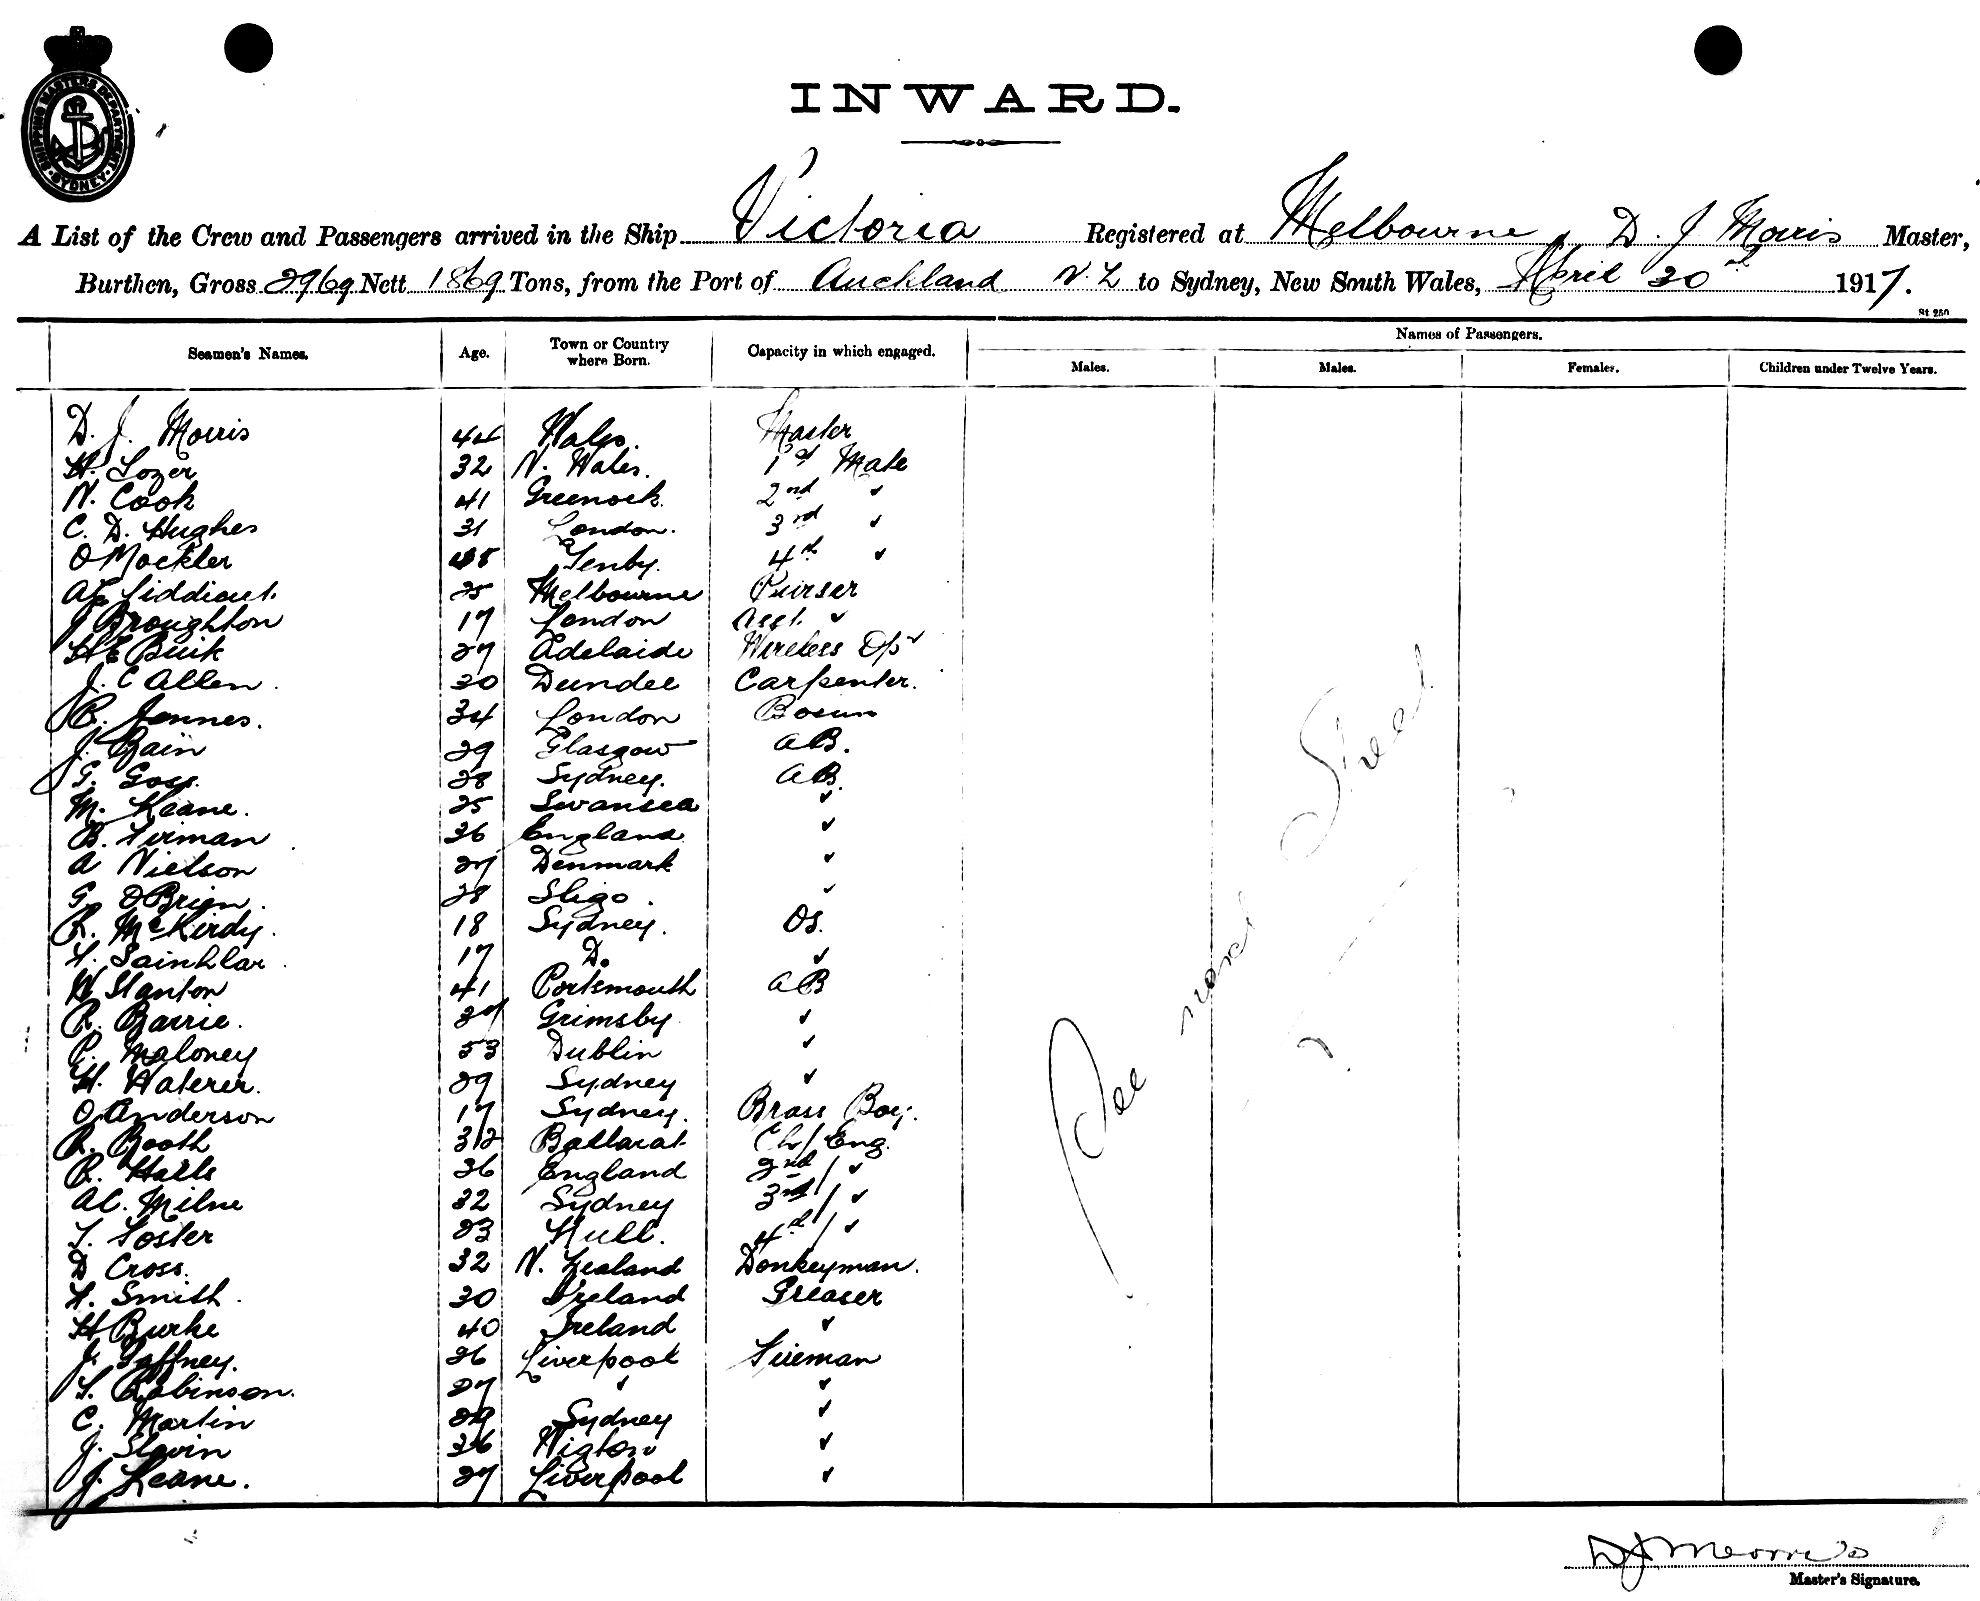 SHIPPING MASTERS DEPARTMENT
SYDNEY
INWARD.
A List of the Crew and Passengers arrived in the Ship Victoria Registered at Melbourne, D. J Morris Master,
Burthen, Gross 2969 Nett 1869 Tons, from the Port of Auckland N.Z to Sydney, New South Wales, April 30th 1917.
St 250
Seamen's Names. Age. Town or Country where Born. Capacity in which engaged. Names of Passengers.
Males. Males. Females. Children under Twelve Years.
D. J. Morris 44 Wales. Master
H. Lozer 32 N. Wales. 1st Mate
N. Cook 41 Greenock. 2nd "
C. D. Hughes 31 London. 3rd "
O Mockler Tenby. 4th "
25 Melbourne Purser
J Broughton 17 London Asst. "
H E Buik 27 Adelaide Wireless Opr
J. C Allen. 30 Dundee Carpenter.
R. Jennes. 34 London Bosun
J. Bain 29 Glasgow AB.
G. Goss. 28 Sydney. AB.
M. Keane. 25 Swansea "
B. Firman 36 England "
A Nielson 27 Denmark "
G. O'Brien. 28 Sligo. "
R. McKirdy. 18 Sydney. OS.
17 Do "
W Stanton 41 Portsmouth AB
R. Barrie. 27 Grimsby "
P. Maloney 53 Dublin "
H. Waterer. 29 Sydney "
O. Anderson 17 Sydney. Brass Boy.
R. Booth 32 Ballarat Ch/ Eng.
R. Halls 36 England 2nd / "
Al. Milne 32 Sydney 3rd / "
T. Foster 23 Hull. 4th / "
D Cross. 32 N. Zealand Donkeyman.
H. Smith. 30 Ireland Greaser
H Burke 40 Ireland "
J. Gaffney. 26 Liverpool Fireman
T. Robinson. 27 " "
C. Martin 29 Sydney "
J. Slavin 36 Wigton "
J. Keane. 27 Liverpool "
See next Sheet
D J Morris
Master's Signature.